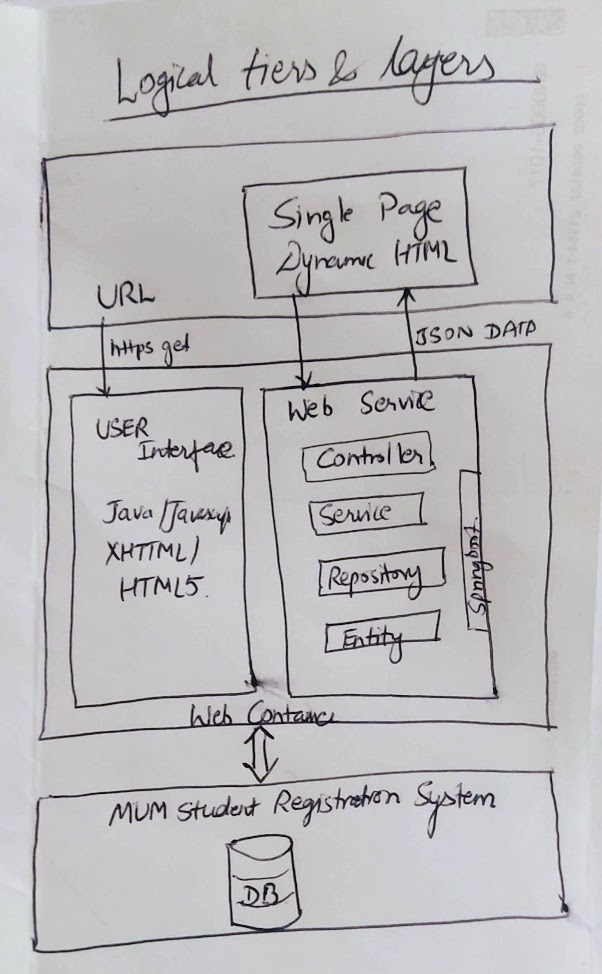 Logical tiers & layers
Single Page
Dynamic HTML
URL
https get
JSON DATA
USER
Interface
Java /Javascrip
XHTTML /
HTML5.
Web Service
Controller
Service
Repository
Entity
Springboot
Web Container
MUM Student Registration System
DB